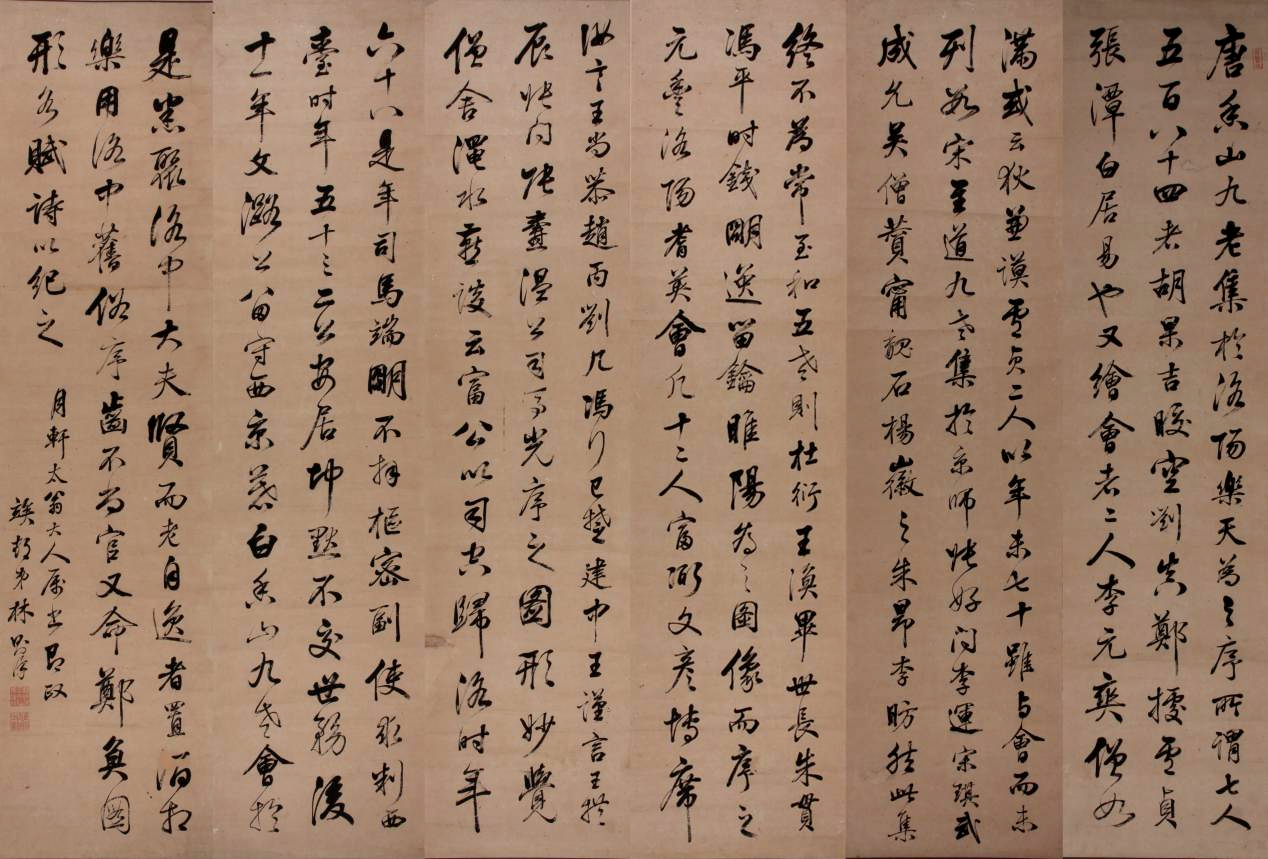 唐香山九老集於洛陽樂天為之序所謂七人
五百八十四者胡杲吉旼劉真鄭據盧貞
張渾白居易也又繪會者二人李元爽僧如
滿或云狄兼謨盧貞二人以年未七十雖与會而未
列及宋至道九老集於京師張好问李運宋琪武
成允吴僧贊甯魏石楊徽之朱昂李昉然此集
終不為常至和五老則杜衍王渙畢世長朱貫
馮平时錢明逸留鑰睢陽為之圖像而序之
元豐洛陽耆英會凡十二人富弼文彥博席
汝言王尚恭趙丙劉几馮行已楚建中王謹言王拱
辰張问張燾温公司馬光序之圖形妙覺
僧舍澠水燕談云富公以司空歸洛时年
六十八是年司馬端明不拜樞密副使求判西
臺时年五十三二公安居冲默不交世務後
十一年文潞公留守西京慕白香山九老會於
是悉聚洛中大夫賢而老自逸者置酒相
樂用洛中舊俗序齒不尚官又命鄭奐圖
形各賦詩以紀之
月軒太翁大人属書即政
弟林則徐